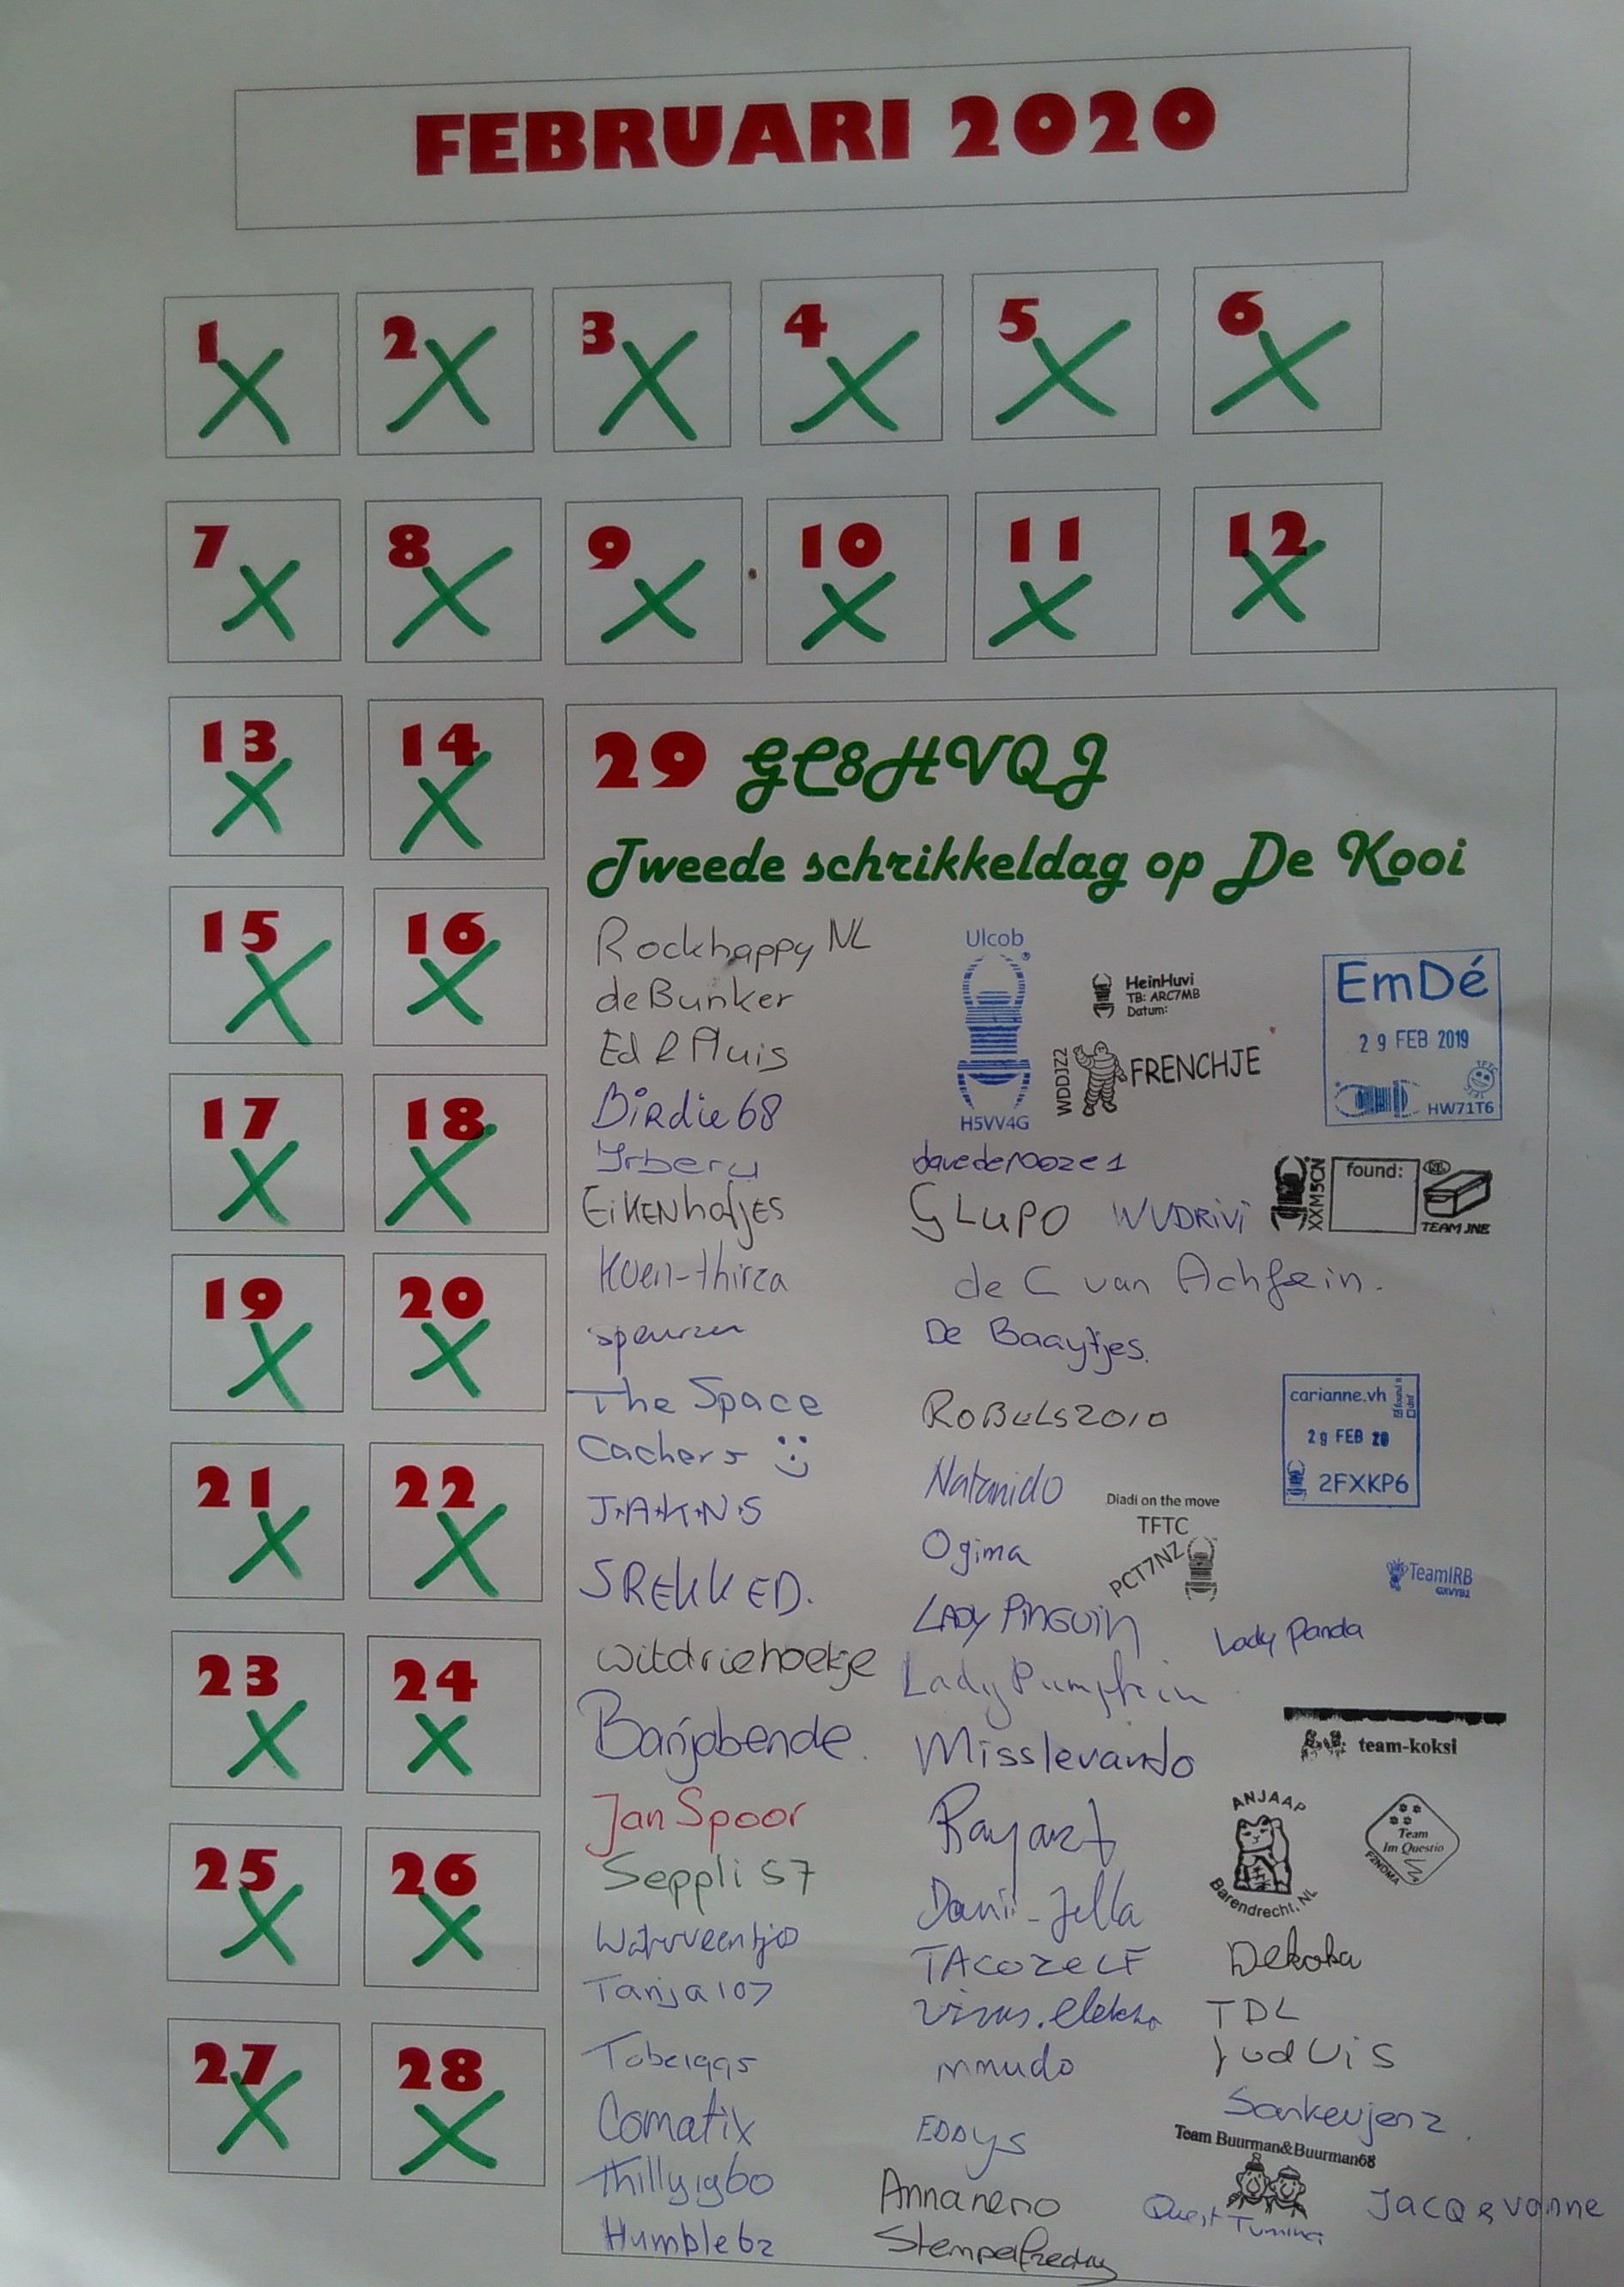 FEBRUARI 2020
1 2 3 4 5 6
7 8 9 10 11 12
13 14
15 16
17 18
19 20
21 22
23 24
25 26
27 28
29 GC8HVQJ
Tweede schrikkeldag op De Kooi
Rockhappy NL
deBunker
Ed & Pluis
Birdie68
EiKENhofjes
Koen-thirza
speurzen
The Space
Cachers
J.A.K.N.S
SREKKED.
witdriehoekje
Banjobende.
Jan Spoor
Seppli 57
Tanja107
Tobe1995
Comatix
Thilly1960
Humble62
Ulcob
H5VV4G
HeinHuvi
TB: ARC7MB
Datum:
WDDJZ2
FRENCHJE
EmDé
29 FEB 2019
HW71T6
davederooze1
GLUPO WVDRIVI
XXM5CN
found:
TEAM JNE
de C van Achfein.
De Baaytjes.
RoBuls2010
carianne.vh
29 FEB 20
2FXKP6
Natanido
Diadi on the move
TFTC
PCT7NZ
Ogima
TeamIRB
LADY PiNGUiN
Lady Panda
Lady Pumpkin
team-koksi
Misslevando
ANJAAP
Barendrecht, NL
Team
Im Questio
F2NDMA
Rayart
Danii-Jella
TACOZELF
Dekoka
virus.elektra
TDL
mmudo
Judvis
Sankeujenz.
EDDYS
Team Buurman&Buurman68
Annanero
Quest Tuning
Jacq & vonne
Stempelfreddy